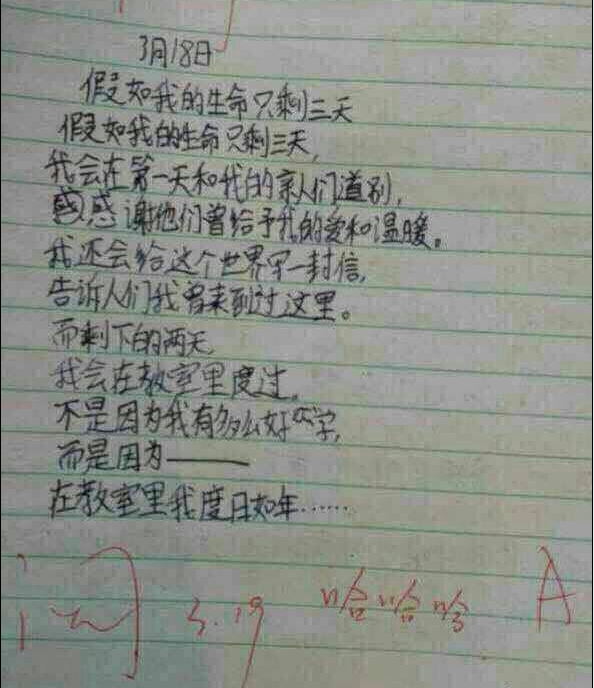 3月18日
假如我的生命只剩三天
假如我的生命只剩三天,
我会在第一天和我的亲人们道别,
感感谢他们曾给予我的爱和温暖。
我还会给这个世界写一封信,
告诉人们我曾来到过这里。
而剩下的两天,
我会在教室里度过。
不是因为我有多么好学,
而是因为——
在教室里我度日如年……
阅 3.19 哈哈哈 A